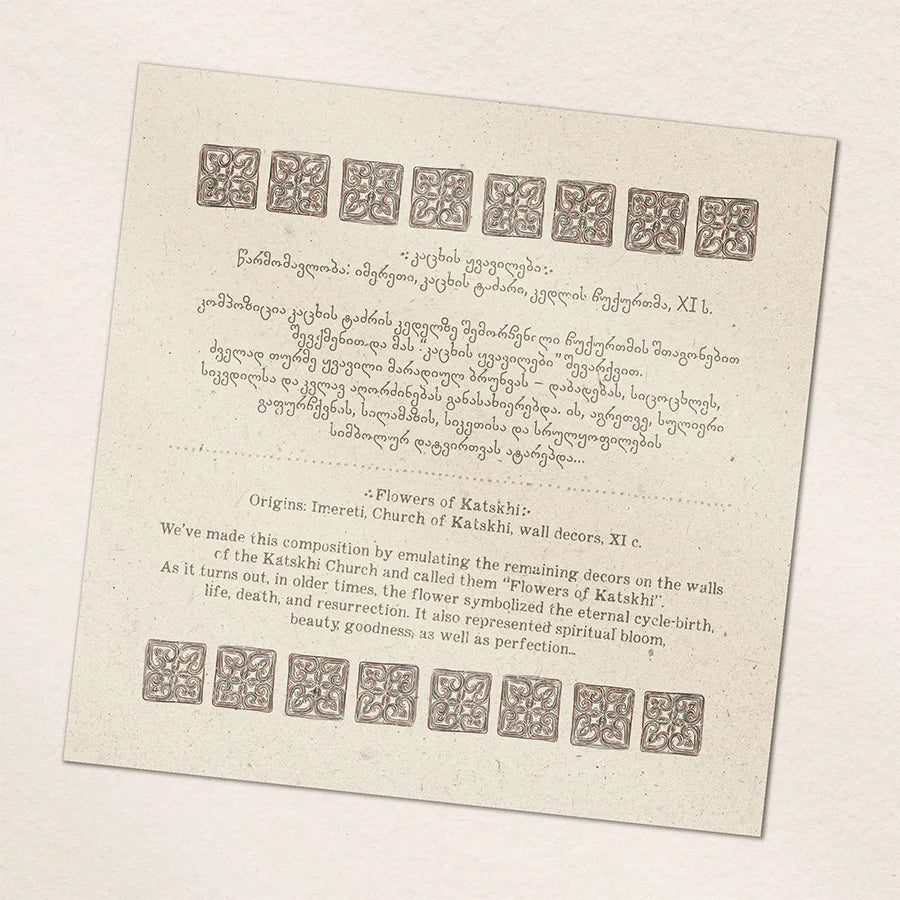 ∴კაცხის ყვავილები:·
წარმომავლობა: იმერეთი, კაცხის ტაძარი, კედლის ჩუქურთმა, XI ს.
კომპოზიცია კაცხის ტაძრის კედელზე შემორჩენილი ჩუქურთმის შთაგონებით
შევქმენით და მას "კაცხის ყვავილები" შევარქვით.
ძველად თურმე ყვავილი მარადიულ ბრუნვას – დაბადებას, სიცოცხლეს,
სიკვდილსა და კვლავ აღორძინებას განასახიერებდა. ის, აგრეთვე, სულიერი
გაფურჩქვნას, სილამაზის, სიკეთისა და სრულყოფილების
სიმბოლურ დატვირთვას ატარებდა...
∴Flowers of Katskhi:·
Origins: Imereti, Church of Katskhi, wall decors, XI c.
We've made this composition by emulating the remaining decors on the walls
of the Katskhi Church and called them "Flowers of Katskhi".
As it turns out, in older times, the flower symbolized the eternal cycle-birth,
life, death, and resurrection. It also represented spiritual bloom,
beauty, goodness, as well as perfection...